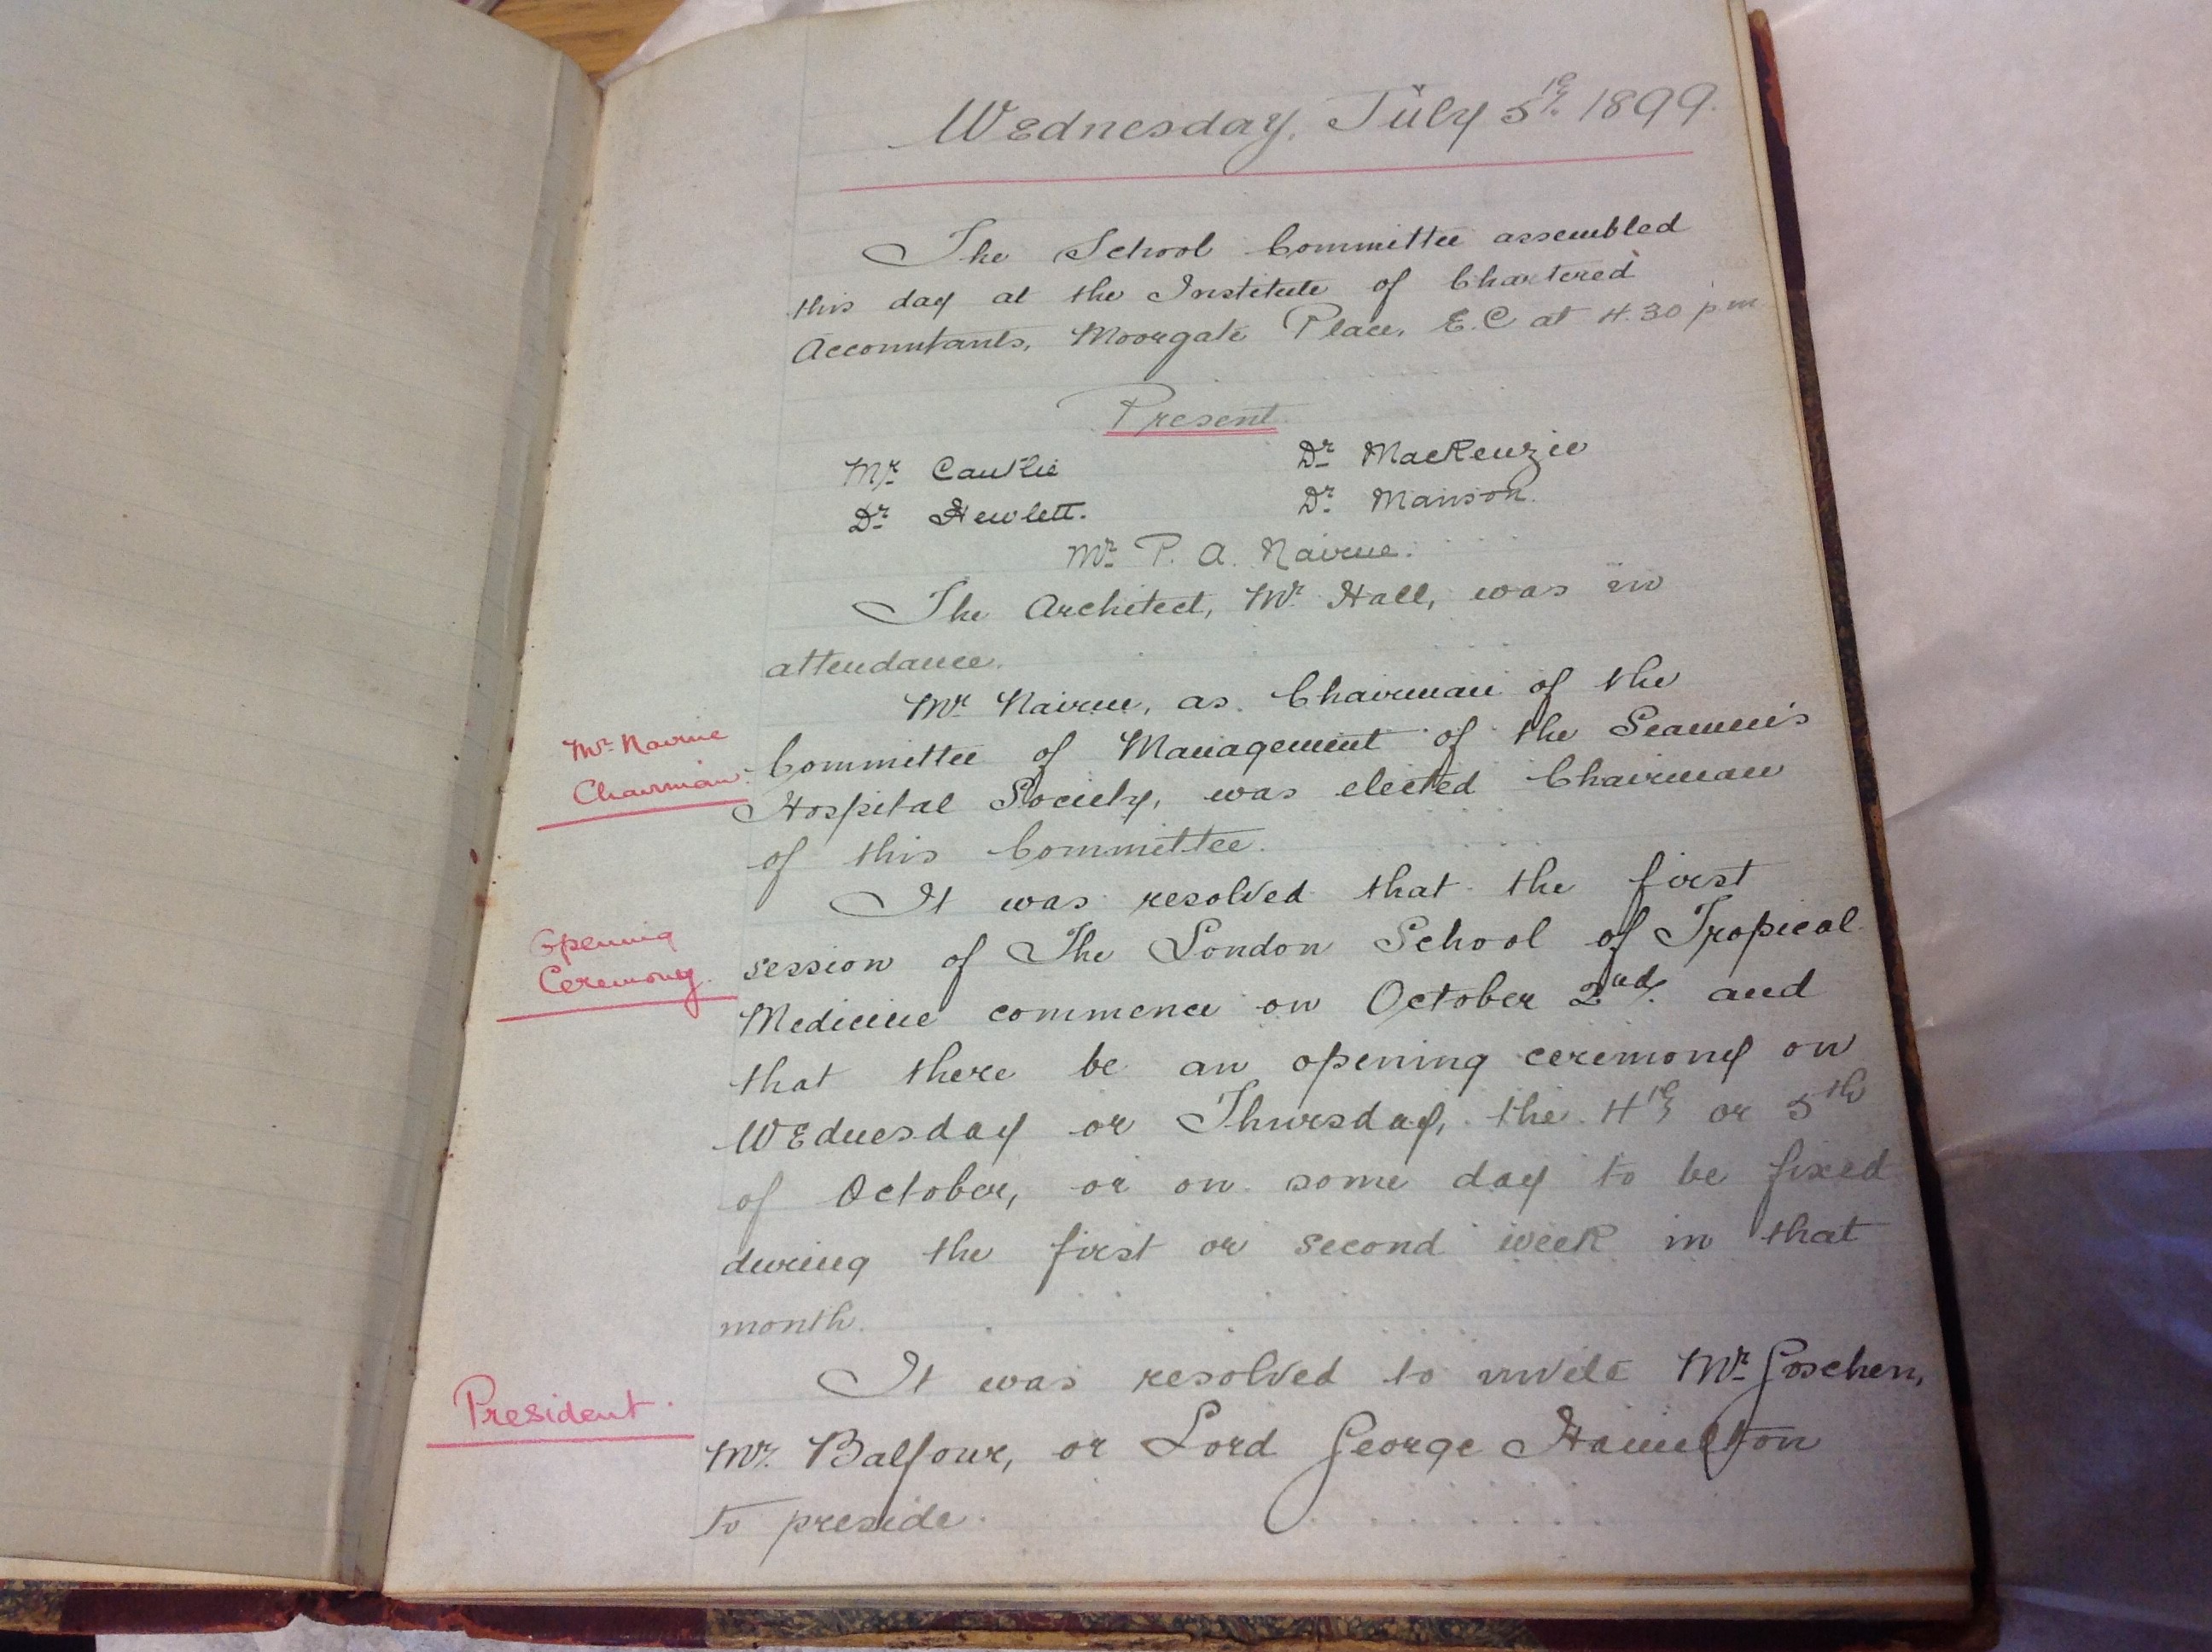 Wednesday, July 5th. 1899.
The School Committee assembled
this day at the Institute of Chartered
Accountants, Moorgate Place, E.C at 4.30 p m
Present
Mr Cantlie Dr MacKenzie
Dr Hewlett. Dr Manson.
Mr P. A. Nairne.
The Architect, Mr Hall, was in
attendance.
Mr Nairne, as Chairman of the
Mr Nairne
Chairman.
Committee of Management of the Seamen's
Hospital Society, was elected Chairman
of this Committee.
It was resolved that the first
Opening
Ceremony.
session of The London School of Tropical
Medicine commence on October 2nd. and
that there be an opening ceremony on
Wednesday or Thursday, the 4th or 5th
of October, or on some day to be fixed
during the first or second week in that
month.
It was resolved to invite Mr Goschen,
President.
Mr. Balfour, or Lord George Hamilton
to preside.